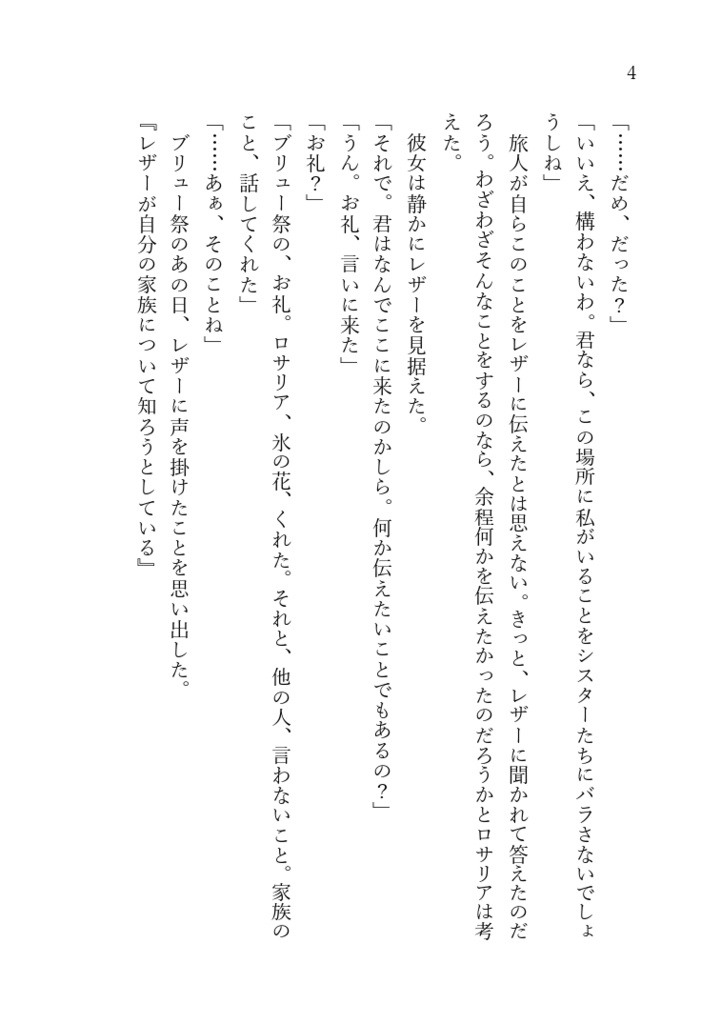 4
「……だめ、だった？」
「いいえ、構わないわ。君なら、この場所に私がいることをシスターたちにバラさないでしょ
うしね」
　旅人が自らこのことをレザーに伝えたとは思えない。きっと、レザーに聞かれて答えたのだ
ろう。わざわざそんなことをするのなら、余程何かを伝えたかったのだろうかとロサリアは考
えた。
　彼女は静かにレザーを見据えた。
「それで。君はなんでここに来たのかしら。何か伝えたいことでもあるの？」
「うん。お礼、言いに来た」
「お礼？」
「ブリュー祭の、お礼。ロサリア、氷の花、くれた。それと、他の人、言わないこと。家族の
こと、話してくれた」
「……あぁ、そのことね」
　ブリュー祭のあの日、レザーに声を掛けたことを思い出した。
『レザーが自分の家族について知ろうとしている』